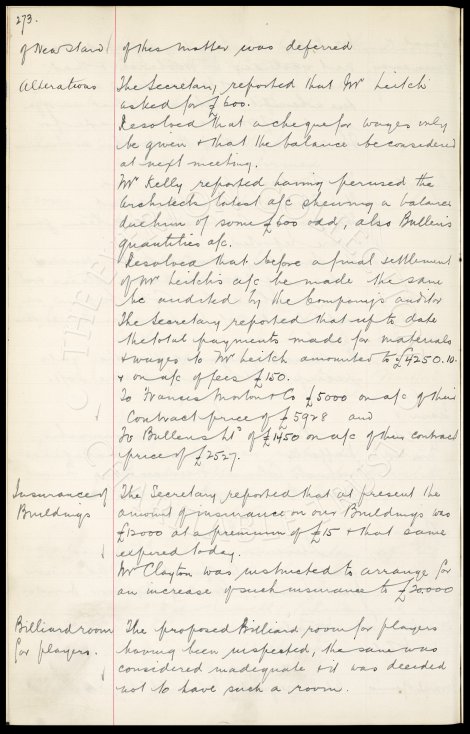 273.
of New Stand of this matter was deferred
Alterations The Secretary reported that Mr Leitch
asked for £600.
Resolved that a cheque for wages only
be given + that the balance be considered
at next meeting.
Mr Kelly reported having perused the
Architects latest a/c shewing a balance
due him of some £600 odd, also Bullens
quantities a/c.
Resolved that before a final settlement
of Mr Leitch's a/c be made the same
be audited by the Company's auditor
The Secretary reported that up to date
the total payments made for materials
+ wages to Mr Leitch amounted to £4250.10.
+ on a/c of fees £150.
To Francis Morton & Co £5000 on a/c of their
Contract price of £5928 and
To Bullens Ld of £1450 on a/c of their contract
price of £2527.
Insurance of The Secretary reported that at present the
Buildings amount of insurance on our Buildings was
£12000 at a premium of £15 + that same
expired today.
Mr Clayton was instructed to arrange for
an increase of such insurance to £20,000
Billiard room The proposed Billiard room for players
for players. having been inspected, the same was
considered inadequate + it was decided
not to have such a room.